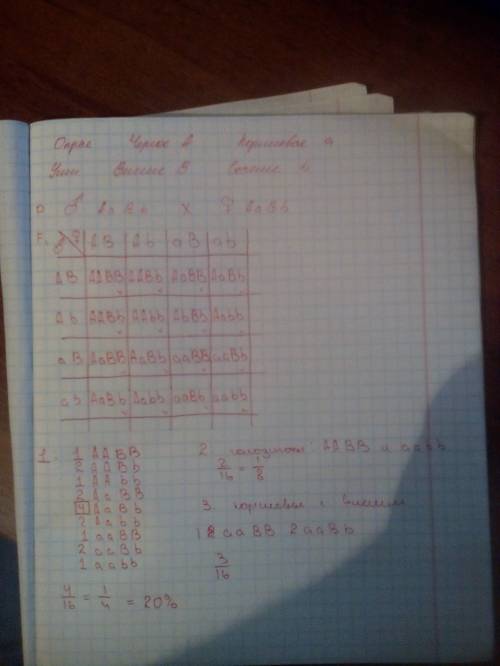 Окрас Черное A Коричневое a
Уши Висячие B Стоячие b
P ♂ AaBb X ♀ AaBb
F₁ ♂ ♀ AB Ab aB ab
AB AABB AABb AaBB AaBb
Ab AABb AAbb AbBb Aabb
aB AaBB AaBb aaBB aaBb
ab AaBb Aabb aaBb aabb
1. 1 AABB
2 AABb
1 AAbb
2 AaBB
4 AaBb
2 Aabb
1 aaBB
2 aaBb
1 aabb
4/16 = 1/4 = 20%
2. гомозиготн: AABB и aabb
2/16 = 1/8
3. коричневые с висячим
1 aaBB 2 aaBb
3/16